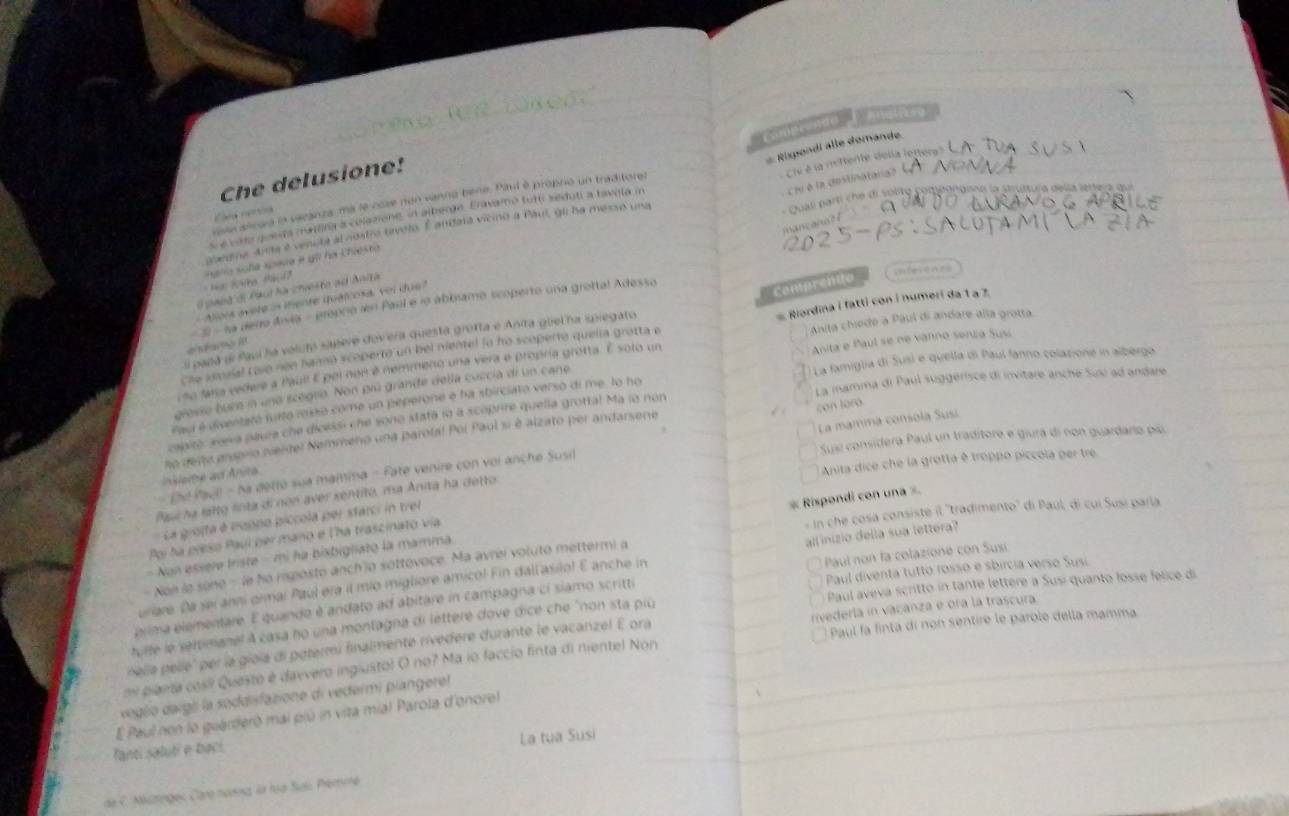 COMPITO PER LUNEDI
Che delusione!
Cara nonna,
sono ancora in vacanza, ma le cose non vanno bene. Paul è proprio un traditore!
Si è visto questa mattina a colazione, in albergo. Eravamo tutti seduti a tavola in
giardino. Anita è venuta al nostro tavolo. È andata vicino a Paul, gli ha messo una
mano sulla spalla e gli ha chiesto:
- Hai finito, Paul?
Il papà di Paul ha chiesto ad Anita:
- Allora avete in mente qualcosa, voi due?
- Sì - ha detto Anita - proprio ieri Paul e io abbiamo scoperto una grotta! Adesso
andiamo lì!
Il papà di Paul ha voluto sapere dov'era questa grotta e Anita gliel'ha spiegato.
Che storia! Loro non hanno scoperto un bel niente! Io ho scoperto quella grotta e
l'ho fatta vedere a Paul! E poi non è nemmeno una vera e propria grotta. È solo un
grosso buco in uno scoglio. Non più grande della cuccia di un cane.
Paul è diventato tutto rosso come un peperone e ha sbirciato verso di me. Io ho
capito: aveva paura che dicessi che sono stata io a scoprire quella grotta! Ma io non
ho detto proprio niente! Nemmeno una parola! Poi Paul si è alzato per andarsene
insieme ad Anita.
- Ehi Paul! - ha detto sua mamma - Fate venire con voi anche Susi!
Paul ha fatto finta di non aver sentito, ma Anita ha detto:
- La grotta è troppo piccola per starci in tre!
Poi ha preso Paul per mano e l'ha trascinato via.
- Non essere triste - mi ha bisbigliato la mamma.
- Non lo sono - le ho risposto anch'io sottovoce. Ma avrei voluto mettermi a
urlare. Da sei anni ormai Paul era il mio migliore amico! Fin dall'asilo! E anche in
prima elementare. E quando è andato ad abitare in campagna ci siamo scritti
tutte le settimane! A casa ho una montagna di lettere dove dice che "non sta più
nella pelle" per la gioia di potermi finalmente rivedere durante le vacanze! E ora
mi pianta così! Questo è davvero ingiusto! O no? Ma io faccio finta di niente! Non
voglio dargli la soddisfazione di vedermi piangere!
E Paul non lo guarderò mai più in vita mia! Parola d'onore!
Tanti saluti e baci.
La tua Susi
da C. Nöstlinger, Cara nonna, la tua Susi, Piemme
Comprendo Analizzo
Rispondi alle domande.
- Chi è la mittente della lettera? LA TUA SUSI
- Chi è la destinataria? LA NONNA
- Quali parti che di solito compongono la struttura della lettera qui
mancano? DURANO 6 APRILE
2025 - PS: SALUTAMI LA ZIA
Comprendo Inferenze
Riordina i fatti con i numeri da 1 a 7.
Anita chiede a Paul di andare alla grotta.
Anita e Paul se ne vanno senza Susi.
La famiglia di Susi e quella di Paul fanno colazione in albergo.
La mamma di Paul suggerisce di invitare anche Susi ad andare
con loro.
La mamma consola Susi.
Susi considera Paul un traditore e giura di non guardarlo più.
Anita dice che la grotta è troppo piccola per tre.
Rispondi con una x.
- In che cosa consiste il "tradimento" di Paul, di cui Susi parla
all'inizio della sua lettera?
Paul non fa colazione con Susi.
Paul diventa tutto rosso e sbircia verso Susi.
Paul aveva scritto in tante lettere a Susi quanto fosse felice di
rivederla in vacanza e ora la trascura.
Paul fa finta di non sentire le parole della mamma.